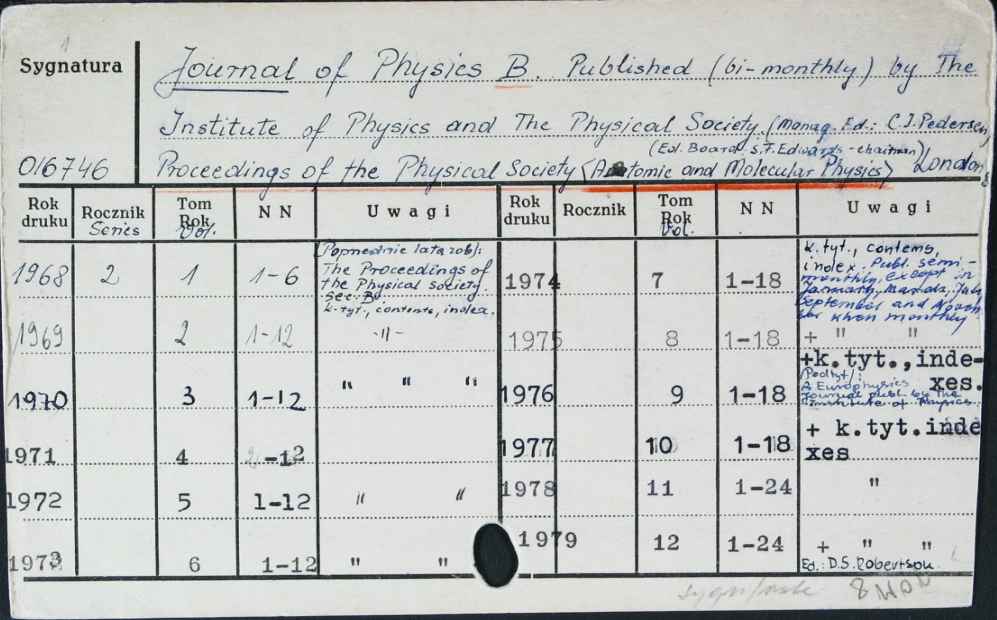 1
Sygnatura
Journal of Physics B. Published (bi-monthly) by The
Institute of Physics and The Physical Society. (Manag. Ed.: C.I. Pedersen,
(Ed. Board S.F. Edwards - chairman)
016746
Proceedings of the Physical Society (Atomic and Molecular Physics) London,
Rok druku Rocznik Series Tom Rok Vol. N N Uwagi Rok druku Rocznik Tom Rok Vol. N N Uwagi
1968 2 1 1-6
(Poprzednie lata zob):
The Proceedings of
the Physical Society.
Sec. B.
k.tyt., contents, index.
1974 7 1-18
k. tyt., contents,
index. Publ. semi-
monthly, except in
September and
when monthly
1969 2 1-12 -"- 1975 8 1-18 + " "
1970 3 1-12 " " " 1976 9 1-18
+k.tyt., inde-
xes.
(Podtyt):
A Europhysics
Journal publ. by the
Institute of Physics.
1971 4 -12 1977 10 1-18
+ k.tyt.inde
xes
1972 5 1-12 " " 1978 11 1-24 "
1973 6 1-12 " " 1979 12 1-24 + " "
Ed.: D.S. Robertson.
8 NON